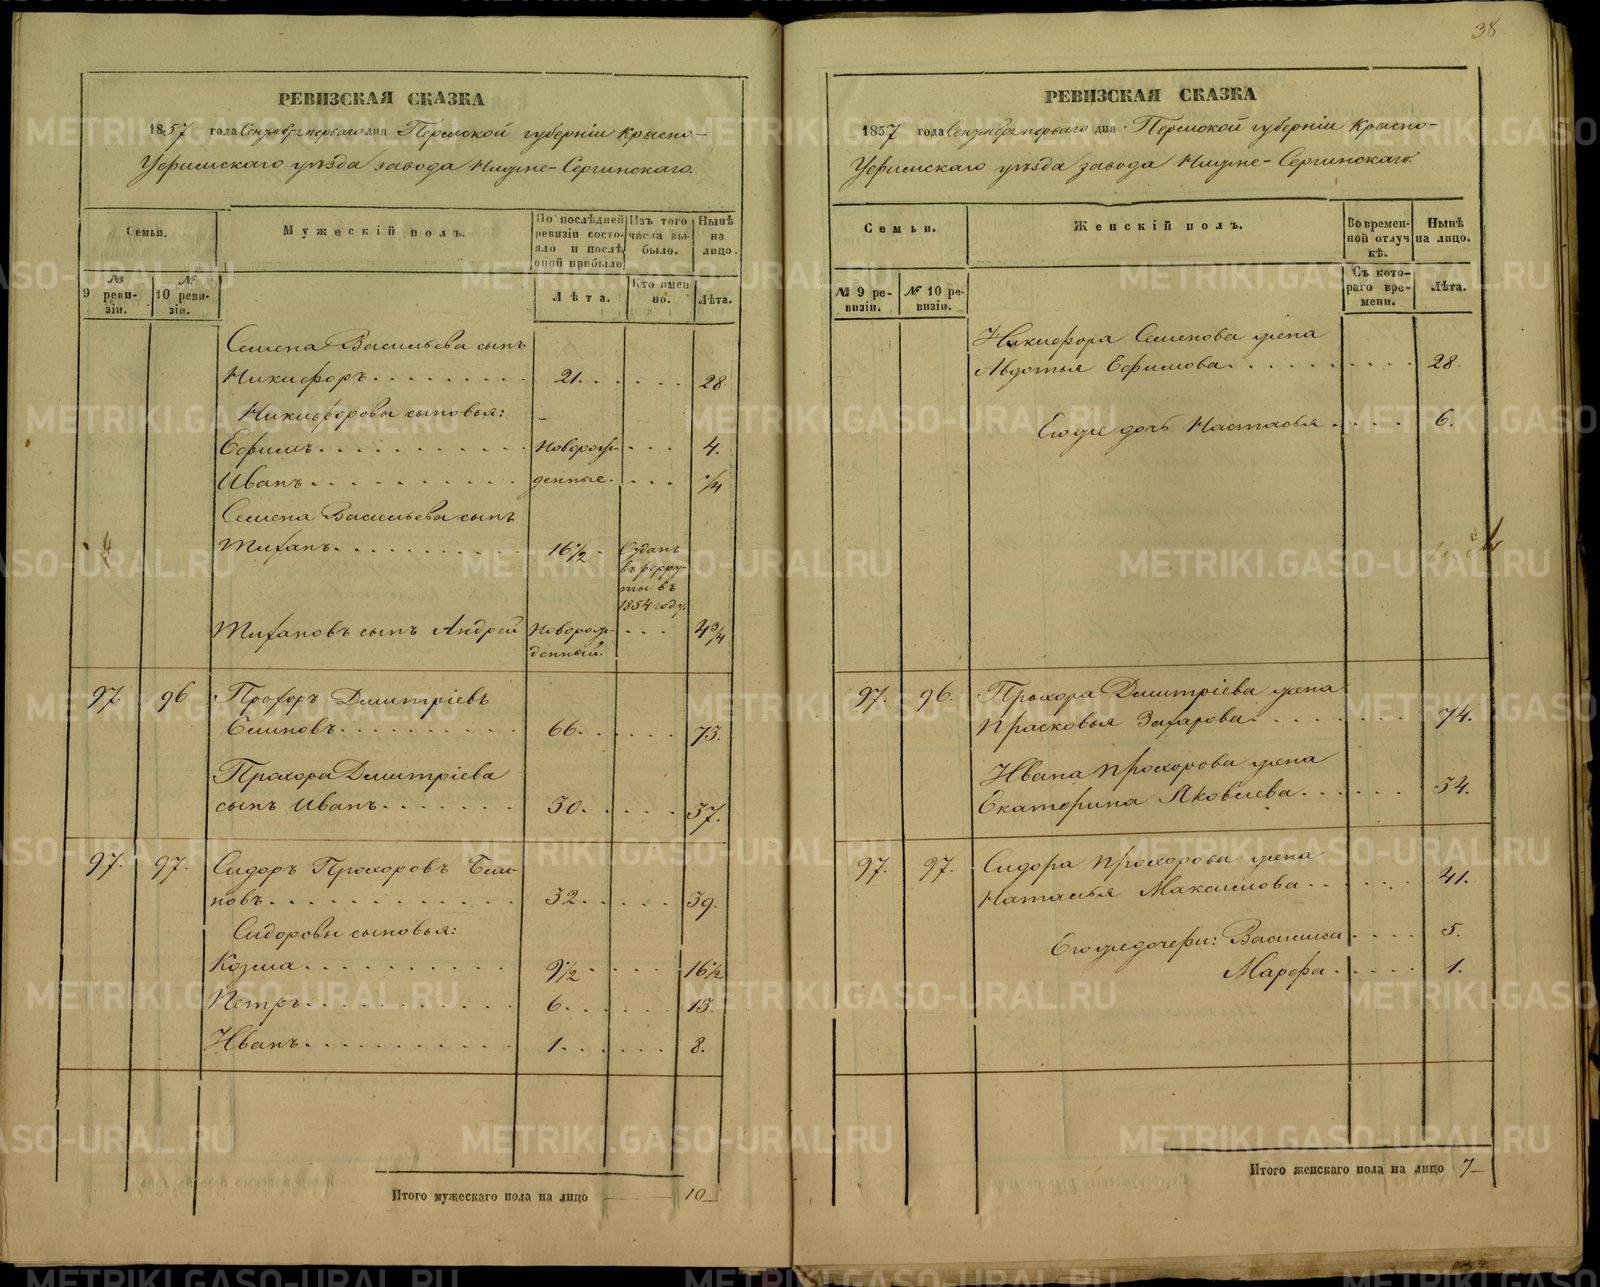 38
РЕВИЗСКАЯ СКАЗКА
1857 года Сентября перваго дня Пермской губерніи Красно-
Уфимскаго уѣзда завода Нижне-Сергинскаго.
Семьи.
Мужескій полъ.
По послѣдней ревизіи состояло и послѣ оной прибыло
Изъ того числа выбыло.
Нынѣ на лицо.
№ 9 ревизіи.
№ 10 ревизіи.
Лѣта.
Кто именно.
Лѣта.
Семена Васильева сынъ
Никифоръ 21. 28.
Никифоровы сыновья:
Ефимъ Новорож- 4.
Иванъ денные. 1/4
Семена Васильева сынъ
Тиханъ 16 1/2 Отданъ
въ рекру-
ты въ
1854 году.
Тихановъ сынъ Андрей Новорож- 4 3/4
денный.
97. 96. Прохоръ Дмитріевъ
66. 73.
Прохора Дмитріева
сынъ Иванъ 30. 37.
97. 97. Сидоръ Прохоровъ
новъ 32. 39.
Сидоровы сыновья:
Козма 9 1/2 16 1/2
Петръ 6. 13.
Иванъ 1. 8.
Итого мужескаго пола на лицо 10
РЕВИЗСКАЯ СКАЗКА
1857 года Сентября перваго дня Пермской губерніи Красно-
Уфимскаго уѣзда завода Нижне-Сергинскаго.
Семьи.
Женскій полъ.
Во временной отлучкѣ.
Нынѣ на лицо.
№ 9 ревизіи.
№ 10 ревизіи.
Съ котораго времени.
Лѣта.
Никифора Семенова жена
Авдотья Ефимова 28.
Его же дочь Настасья 6.
97. 96. Прохора Дмитріева жена
Прасковья Захарова 74.
Ивана Прохорова жена
Екатерина Яковлева 34.
97. 97. Сидора Прохорова жена
Наталья Максимова 41.
Его же дочери: Василиса 5.
Марфа 1.
Итого женскаго пола на лицо 7
METRIKI.GASO-URAL.RU